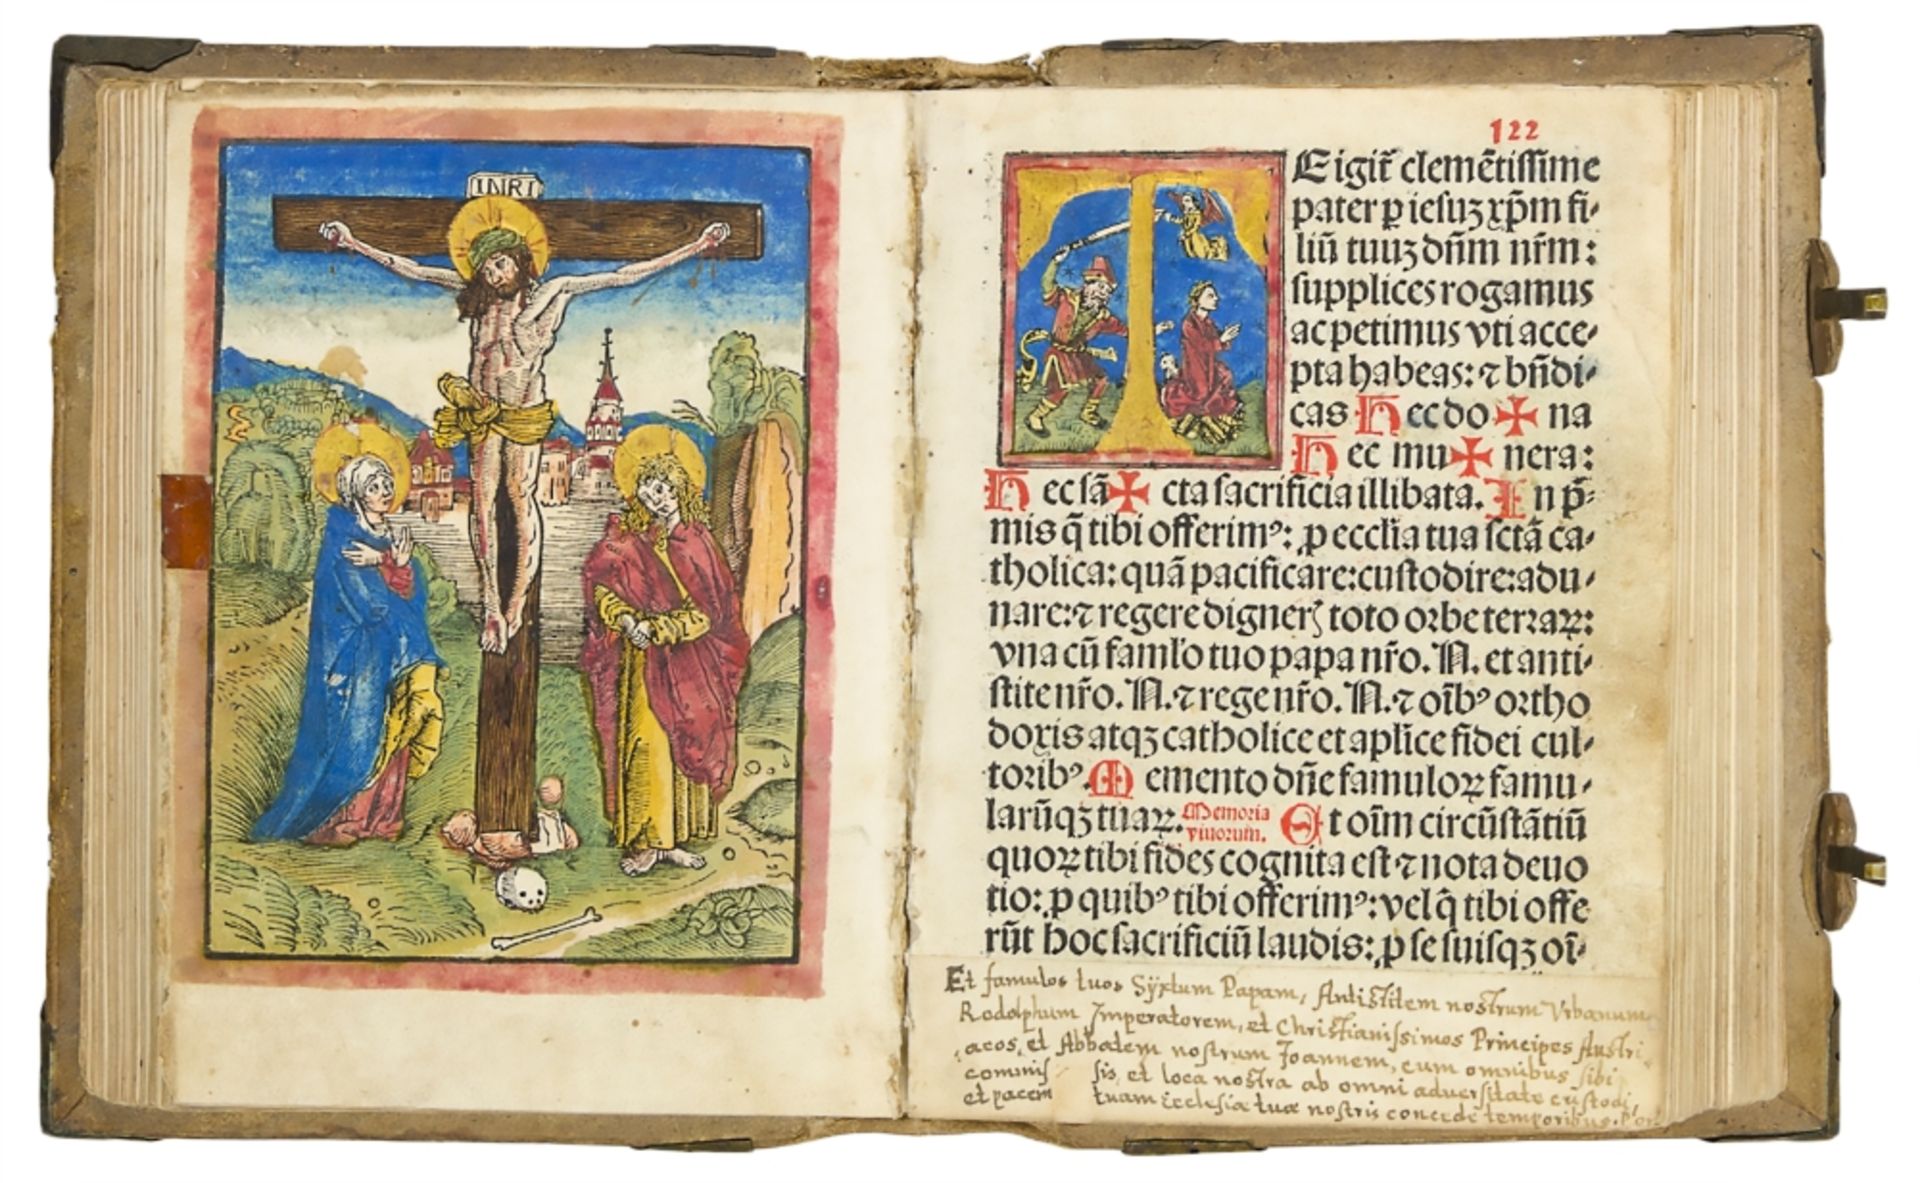 INRI
122
TEigit̃ clemẽtissime
pater ꝑ iesuꝫ xp̃m fi⸗
liũ tuuꝫ dñm nr̃m:
supplices rogamus
ac petimus vti acce⸗
pta habeas: ⁊ bñdi⸗
cas Hec do ✠ na
Hec mu ✠ nera:
Hec sã ✠ cta sacrificia illibata. In p̃⸗
mis q̃ tibi offerimꝰ: ꝓ ecclĩa tua sctã ca⸗
tholica: quã pacificare: custodire: adu⸗
nare: ⁊ regere dignerꝭ toto orbe terraꝝ:
vna cũ famlo tuo papa nr̃o. N. et anti⸗
stite nr̃o. N. ⁊ rege nr̃o. N. ⁊ oĩbꝰ ortho
doxis atqꝫ catholice et aplĩce fidei cul⸗
toribꝰ. Memento dñe famuloꝝ famu⸗
larũqꝫ tuaꝝ. Memoria viuorum. Et oĩm circũstãtiũ
quoꝝ tibi fides cognita est ⁊ nota deuo
tio: ꝓ quibꝰ tibi offerimꝰ: vel q̃ tibi offe
rũt hoc sacrificiũ laudis: ꝓ se suisqꝫ oĩ⸗
Et famulos tuos Sÿxtum Papam, Antistitem nostrum Vrbanum
Rodolphum Imperatorem, et Christianissimos Principes Austri
acos, et Abbatem nostrum Joannem, cum omnibus sibi
commis sis, et loca nostra ab omni aduersitate custodi,
et pacem tuam Ecclesiæ tuæ nostris concede temporibus.